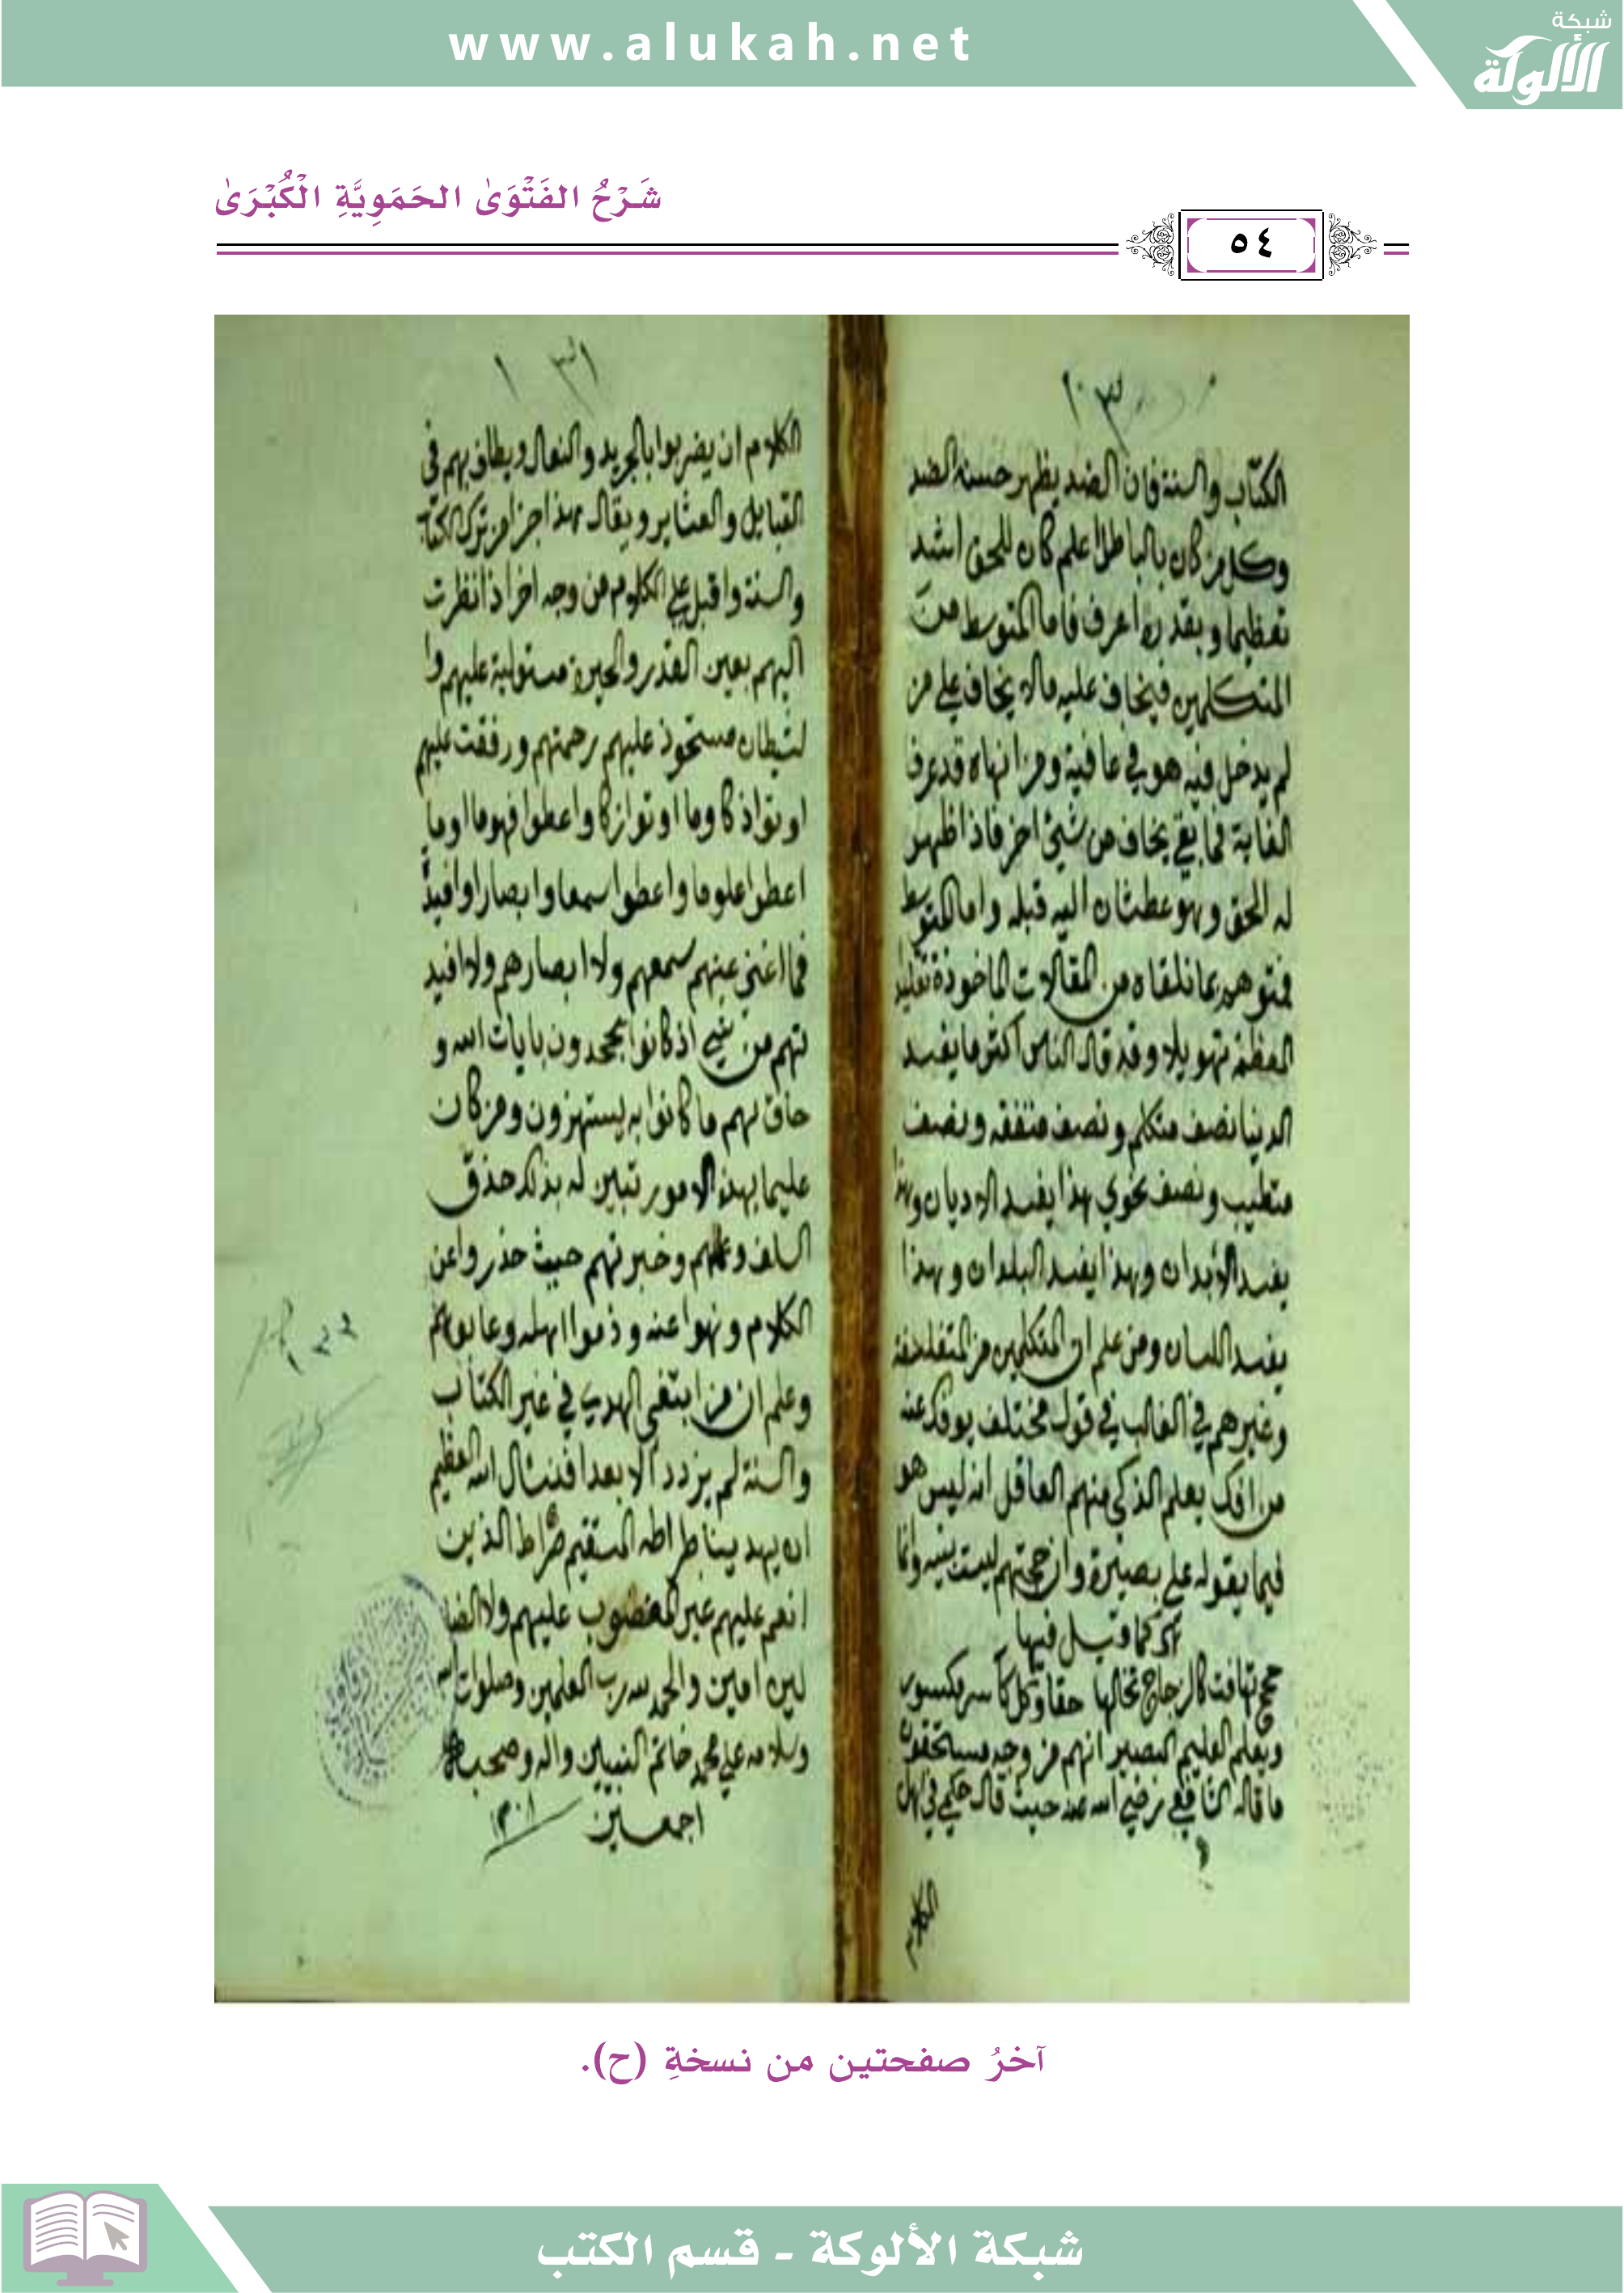 www.alukah.net
شبكة
الألوكة
شَرْحُ الفَتْوَىٰ الحَمَوِيَّةِ الْكُبْرَىٰ
٥٤
الكتاب والسنة فان الضد يظهر حسنه الضد
وكل من كان بالباطل اعلم كان للحق اشد
تعظيما وبقدره اعرف فاما المتوسط من
المتكلمين فيخاف عليه مالا يخاف على من
لم يدخل فيه هو في عافية ومن انهاه قد عرف
الغاية فما بقي يخاف من شيئ اخر فاذا ظهر
له الحق وهو عطشان اليه قبله واما المتوسط
فمتوهم بما تلقاه من المقالات الماخوذة تقليد
المعظمه تهويلا وقد قال الناس اكثر ما يفسد
الدنيا نصف متكلم ونصف متفقه ونصف
متطيب ونصف نحوي هذا يفسد الاديان وهذا
يفسد الأبدان وهذا يفسد البلدان وهذا
يفسد اللسان ومن علم ان المتكلمين من المتفلسفة
وغيرهم في الغالب في قول مختلف يوفك عنه
من افك يعلم الذكي منهم العاقل انه ليس هو
فيما يقوله على بصيرة وان حجتهم ليست ببينه وانما
كما قيل فيها
حجج تهافت كالزجاج تخالها حقا وكل كاسر مكسور
ويعلم العليم البصير انهم من وجه مستحقون
ما قاله الشافعي رضي الله عنه حيث قال حكمي في اهل
الكلام
١٣١
الكلام ان يضربوا بالجريد والنعال ويطاف بهم في
القبايل والعشاير ويقال هذا جزا من ترك الكتا
والسنة واقبل على الكلام من وجه اخر اذا نظرت
اليهم بعين القدر والحيرة مستولية عليهم وا
لشيطان مستحوذ عليهم رحمتهم ورفقت عليهم
اوتوا ذكا وما اوتوا زكا واعطوا فهوما وما
اعطوا علوما واعطوا سمعا وابصارا وافيدة
فما اغنى عنهم سمعهم ولا ابصارهم ولا افيد
تهم من شي اذ كانوا يجحدون بايات الله و
حاق بهم ما كانوا به يستهزون ومن كان
عليما بهذه الامور تبين له بذلك حذق
السلف وعلمهم وخبرتهم حيث حذروا عن
الكلام ونهوا عنه وذموا اهله وعابوهم
وعلم ان من ابتغى الهدى في غير الكتاب
والسنة لم يزدد الا بعدا فنسال الله العظيم
ان يهدينا صراطه المستقيم صراط الذين
انعم عليهم غير المغضوب عليهم ولا الضا
لين امين والحمد لله رب العلمين وصلوات الله
وسلامه على محمد خاتم النبيين واله وصحبه
اجمعين
آخرُ صفحتين من نسخةِ (ح).
شبكة الألوكة - قسم الكتب